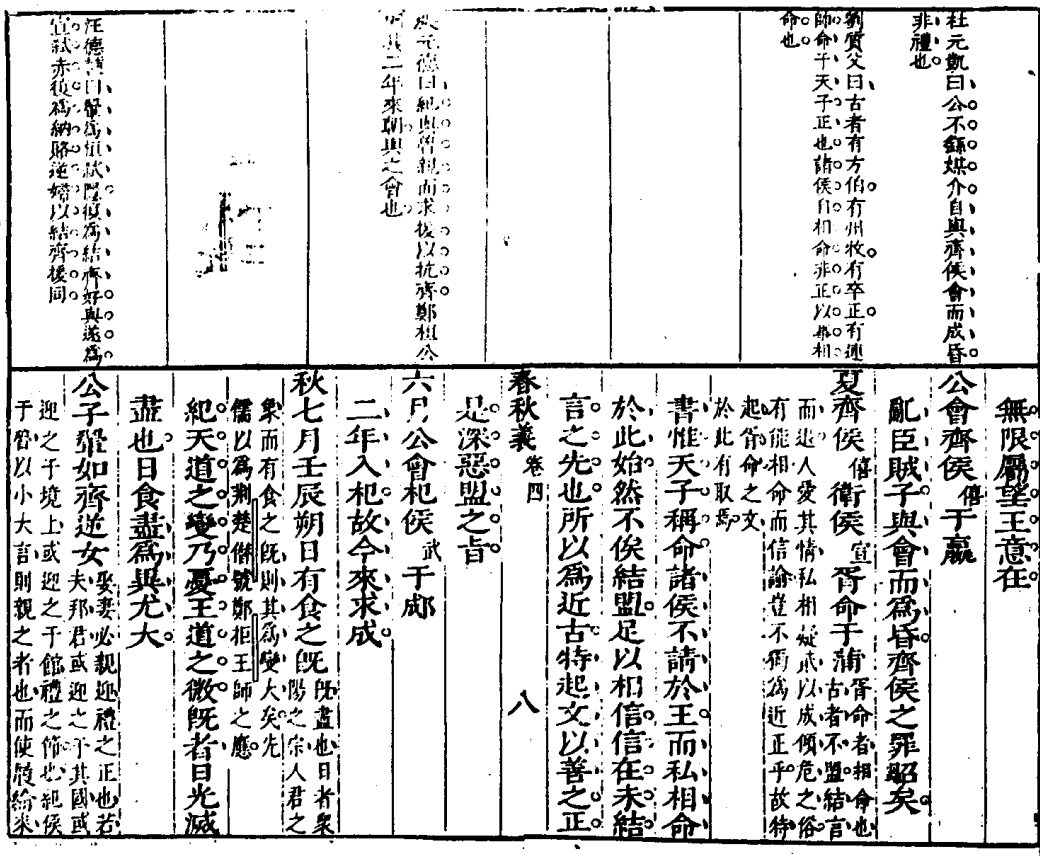 杜元凱曰公不繇媒介自與齊侯會而成昏
非禮也
劉質父曰古者有方伯有州牧有卒正有連
師命于天子正也諸侯自相命非正以舉相
命也
元德曰紀與魯親而求援以抗齊鄭桓公
二年來朝與之會也
汪德
宣弒赤後爲納賂逆婚以結齊援同
無限屬望王意在
公會齊侯僖于嬴
亂臣賊子與會而爲昏齊侯之罪昭矣
夏齊侯僖衛侯宣胥命于蒲胥命者相命也
古者不盟結言
而退人愛其情私相疑貳以成傾危之俗
有能相命而信諭豈不獨爲近正乎故特
起胥命之文
於此有取焉
書惟天子稱命諸侯不請於王而私相命
於此始然不俟結盟足以相信信在未結
言之先也所以爲近古特起文以善之正
春秋義 卷四 八
是深惡盟之旨
六月公會杞侯武于郕
二年入杞故今來求成
秋七月壬辰朔日有食之既既盡也日者衆
陽之宗人君之
象而有食之既則其爲變大矣先
儒以爲荆楚僭號鄭拒王師之應
紀天道之變乃憂王道之微既者日光滅
盡也日食盡爲異尤大
公子翬如齊逆女娶妻必親迎禮之正也若
夫邦君或迎之于其國或
迎之于境上或迎之于館禮之節也紀侯
于魯以小大言則親之者也而使履緰來